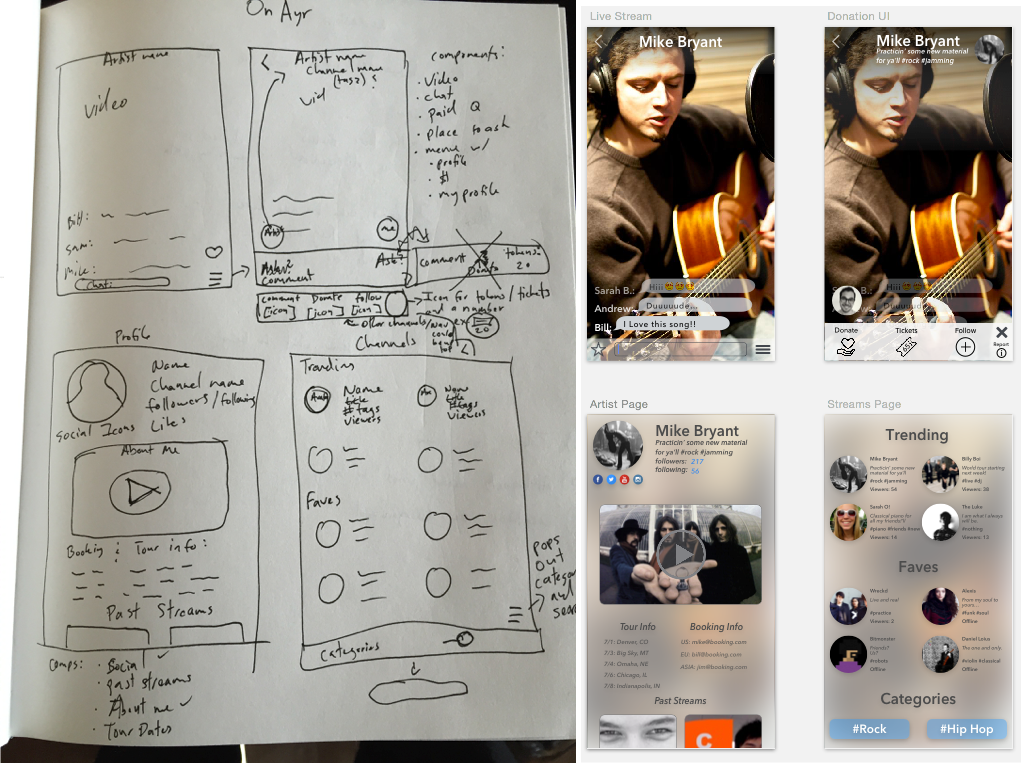 On Ayr
Artist name
video
Bill:
Sam:
Mike:
Chat:
Artist name
Channel name
(tags)
vid
Artist
me
Ask?
Comment
Ask?
Comment
Donate
tokens:
20
comment Donate follow
[icon] [icon] [icon]
Icon for tokens/tickets
and a number
20
other channels/
components:
· video
· chat
· paid Q
· place to ask
· menu w/
· profile
· $
· my profile
Profile
Name
Channel name
followers/following
Likes
Social Icons
About Me
Booking & Tour info:
Past Streams
Comps: · Social
· past streams
· About me
· Tour Dates
Channels
Trending
Name
title
#tags
viewers
Name
title
#tags
viewers
Faves
Categories
pops
out
Live Stream
Mike Bryant
Sarah B.: Hiii 😍😍😍
Andrew: Duuuuude...
Bill: I Love this song!!
Donation UI
Mike Bryant
Practicin' some new material
for ya'll #rock #jamming
Hiii
Duuuuude...
Donate
Tickets
Follow
Report
Artist Page
Mike Bryant
Practicin' some new material
for ya'll #rock #jamming
followers: 217
following: 56
Tour Info
7/1: Denver, CO
7/3: Big Sky, MT
7/4: Omaha, NE
7/6: Chicago, IL
7/8: Indianapolis, IN
Booking Info
US: mike@booking.com
EU: bill@booking.com
ASIA: jim@booking.com
Past Streams
C
Streams Page
Trending
Mike Bryant
Practicin' some new
material for ya'll
#rock #jamming
Viewers: 54
Billy Boi
World tour starting
next week!
#live #dj
Viewers: 38
Sarah O!
Classical piano for
all my friends'll!
#piano #friends
Viewers: 14
The Luke
I am what I always
will be.
#nothing
Viewers: 12
Faves
Wrackd
Live and real
#practice
Viewers: 2
Alexis
From my soul to
yours...
#funk #soul
Offline
Bitmonster
Friends?
Us?
#robots
Offline
Daniel Loius
The one and only
#violin #classical
Offline
Categories
#Rock
#Hip Hop